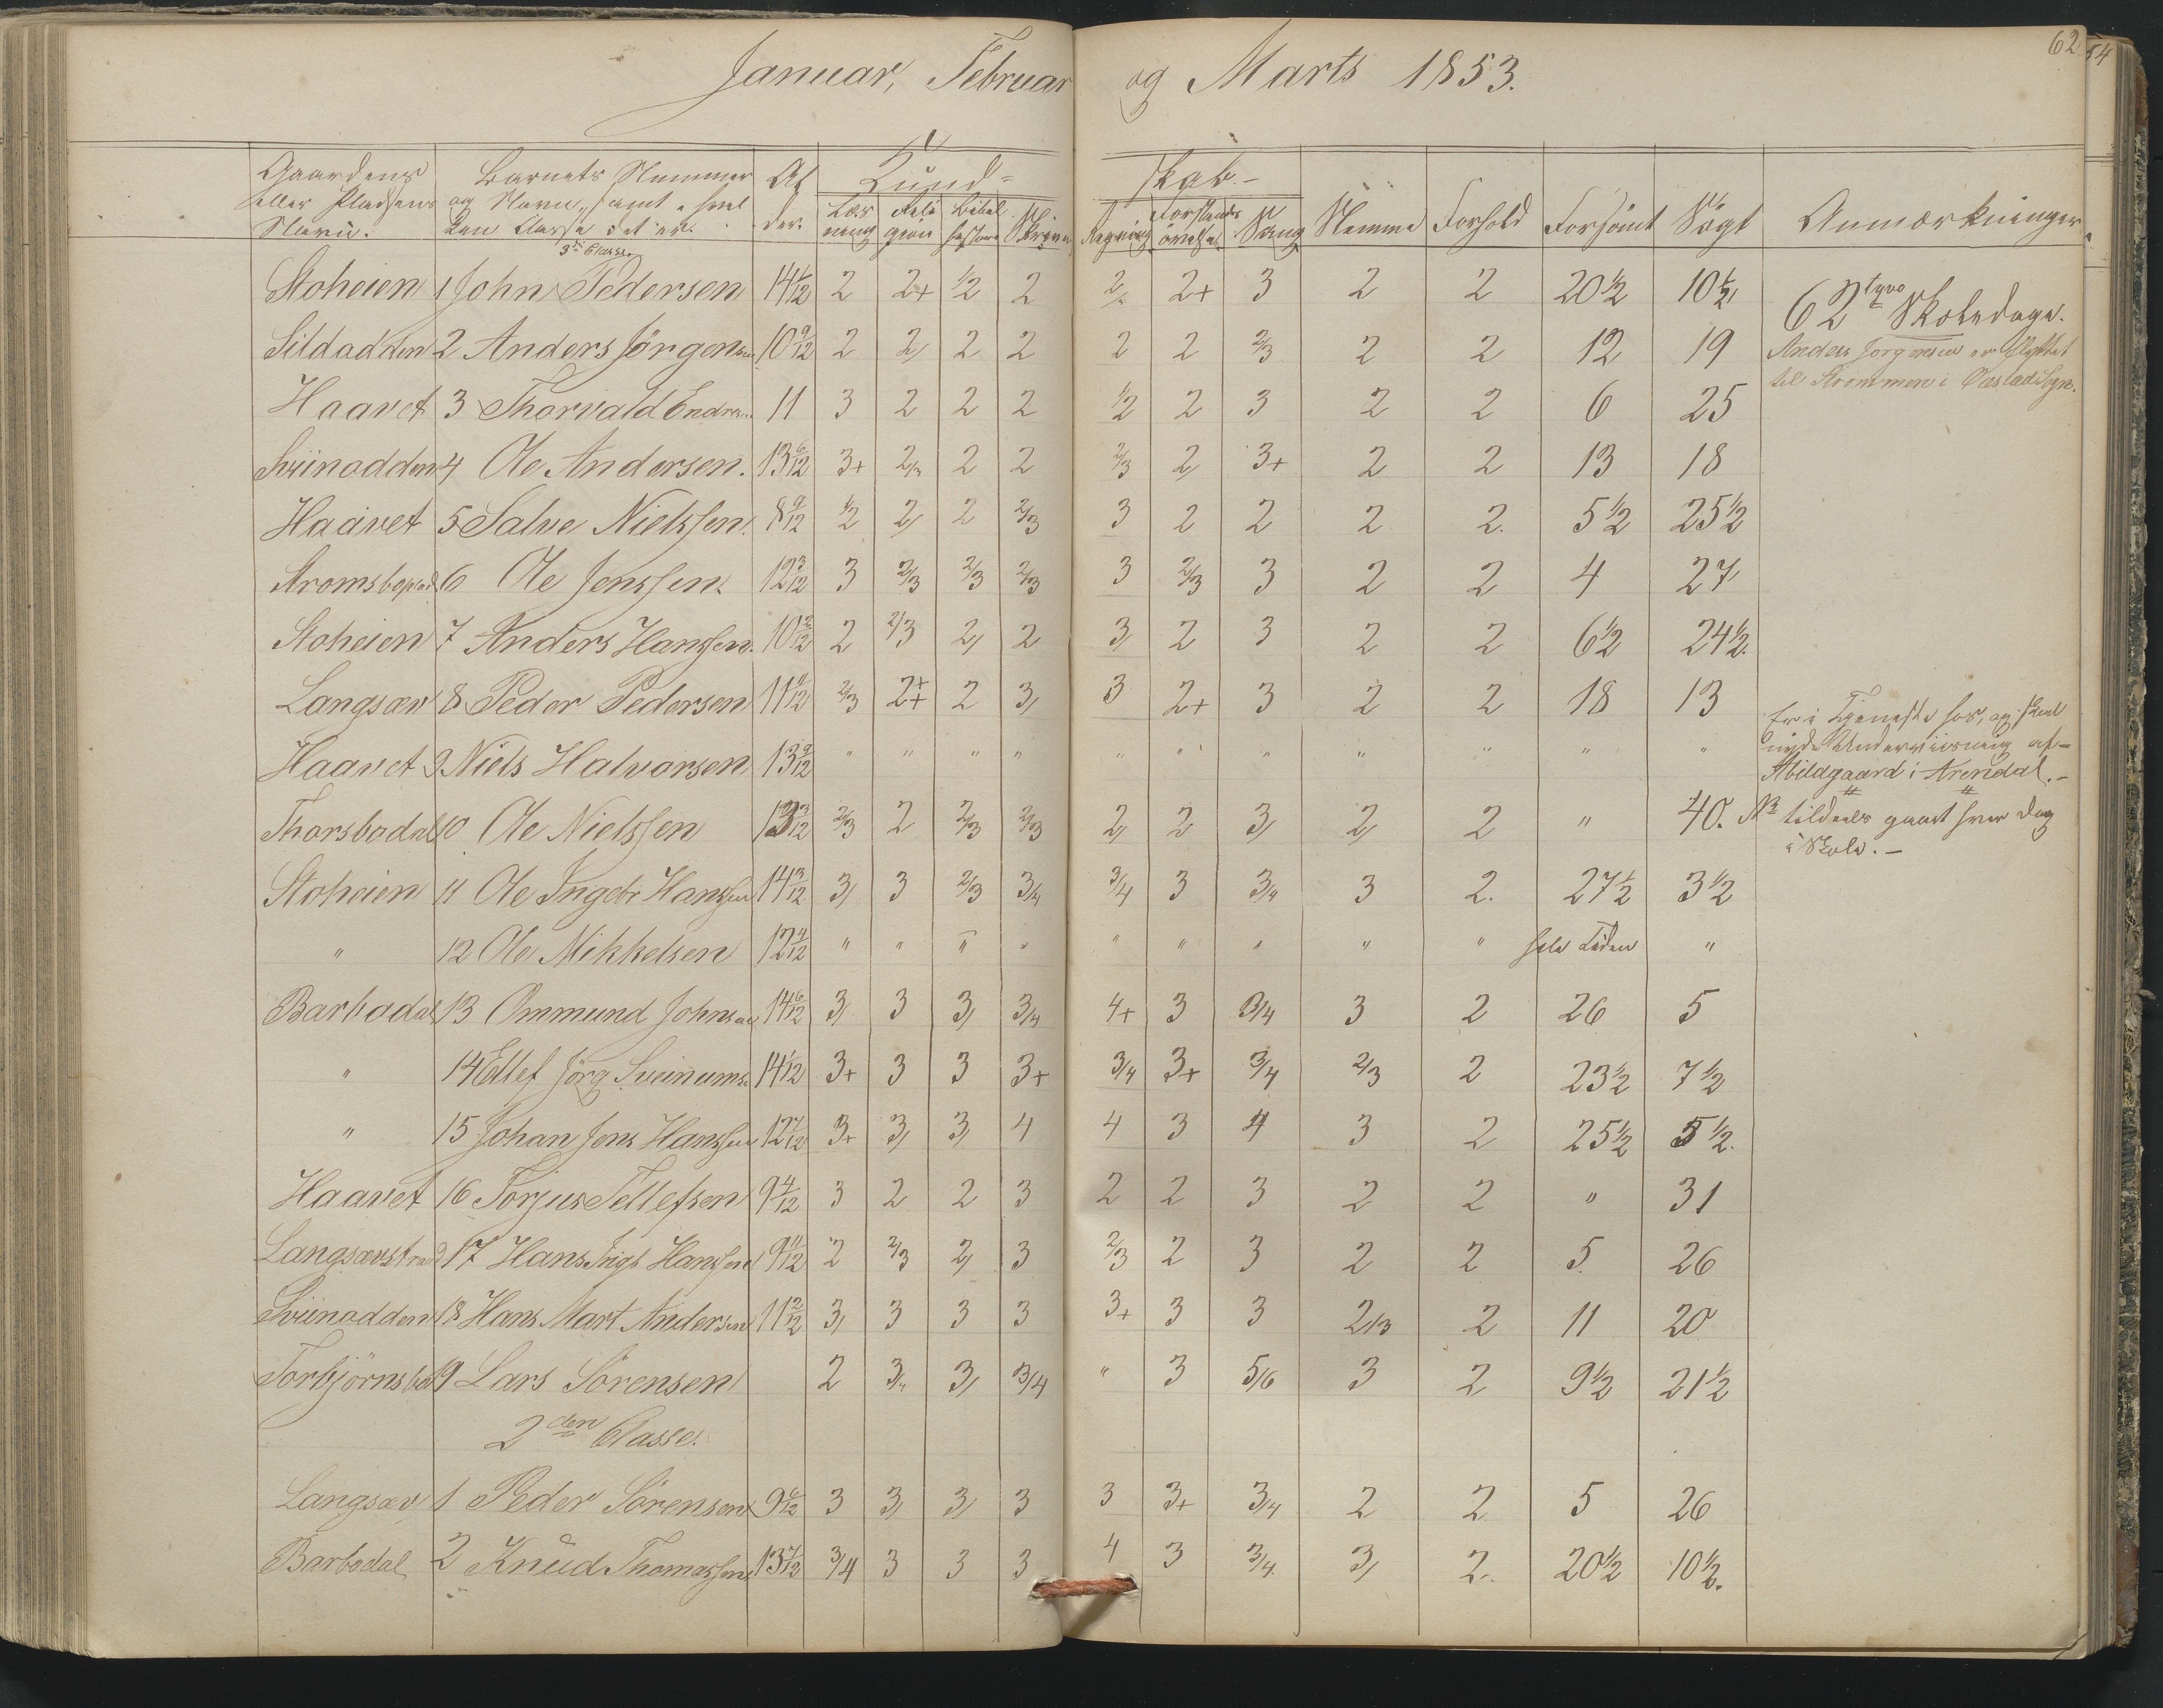 Januar, Februar og Marts 1853.
62
54
Gaardens eller Pladsens Navn. | Barnets Nummer og Navn, samt hvilken Classe det er. | Alder. | Kundskab.- | Nemme | Forhold | Forsömt | Sögt | Anmærkninger
Læsning | Religion | Bibelhistorie | Skrivn | Regning | Forstandsövelse | Sang
3die Classe.
Stoheien 1 John Pedersen 14 1/12 2 2+ 1/2 2 2/ 2+ 3 2 2 20 1/2 10 1/2 62 tyvo Skoledage.
Sildodden 2 Anders Jörgensen 10 9/12 2 2/ 2 2 2 2 2/3 2 2 12 19 Anders Jorgensen er flyttet
til Strömmen i Öiestad Sogn.
Haavet 3 Thorvald Endres. 11 3 2 2 2 1/2 2 3 2 2 6 25
Sviinodden 4 Ole Andersen. 13 6/12 3+ 2/3 2 2 2/3 2/ 3+ 2 2 13 18
Haavet 5 Salve Nielssen. 8 9/12 1/2 2/ 2 2/3 3 2 2 2 2. 5 1/2 25 1/2
Stromsbo 6 Ole Jenssen. 12 3/12 3 2/3 2/3 2/3 3 2/3 3 2 2 4 27
Stoheien 7 Anders Hanssen. 10 2/12 2 2/3 2/ 2 3/ 2 3 2 2 6 1/2 24 1/2.
Langsæv 8 Peder Pedersen 11 9/12 2/3 2++ 2 3/ 3 2+ 3 2 2 18 13
Haavet 9 Niels Halvorsen 13 9/12 " " " " " " " " " " " Er i Tjeneste hos, og skal
nyde Underviisning af-
Abildgaard i Arendal.-
Thorsbodal 10 Ole Nielssen 13 3/12 2/3 2 2/3 2/3 2/ 2 3/ 2/ 2 " 40. tildeels gaaet hver Dag
i Skole.-
Stoheien 11 Ole Ingebr Hanssen 14 3/12 3/ 3 2/3 3/4 3/4 3 3/4 3 2. 27 1/2 3 1/2
" 12 Ole Mikkelsen 12 4/12 " " " " " " " " " hele Tiden "
Barbodal 13 Ommund Johnsen 14 6/12 3/ 3 3/ 3/4 4+ 3 3/4 3 2 26 5
" 14 Ellef Jörg Sveinums. 14 1/12 3+ 3 3 3+ 3/4 3+ 3/4 2/3 2 23 1/2 7 1/2
" 15 Johan Jens Hanssen 12 7/12 3+ 3/ 3/ 4 4 3 4 3 2 25 1/2 5 1/2.
Haavet 16 Torjus Tellefsen 9 4/12 3 2 2 3 2 2 3 2 2 " 31
Langsævstrand 17 Hans Ingb Hanssen 9 11/12 2 2/3 2/ 3 2/3 2 3 2 2 5. 26
Sviinodden 18 Hans Mart Andersen 11 2/12 3/ 3 3 3 3+ 3 3 2/3 2 11 20
Torbjörnsbo 19 Lars Sörensen 2 3/4 3/ 3/4 " 3 5/6 3 2 9 1/2 21 1/2
2den Classe.
Langsæv 1 Peder Sörensen 9 6/12 3 3/ 3/ 3 3 3+ 3/4 2 2 5 26
Barbodal 2 Knud Thomassen 13 7/12 3/4 3 3 3 4 3 3/4 3/ 2. 20 1/2 10 1/2.